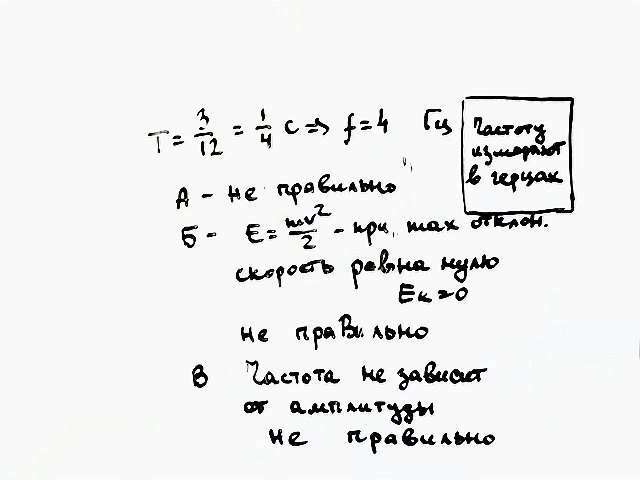 T = 3/12 = 1/4 с => f = 4 Гц
Частоту
измеряют
в герцах
А - не правильно
Б - E = mv²/2 - при max отклон.
скорость равна нулю
Ек = 0
не правильно
В Частота не зависит
от амплитуды
не правильно